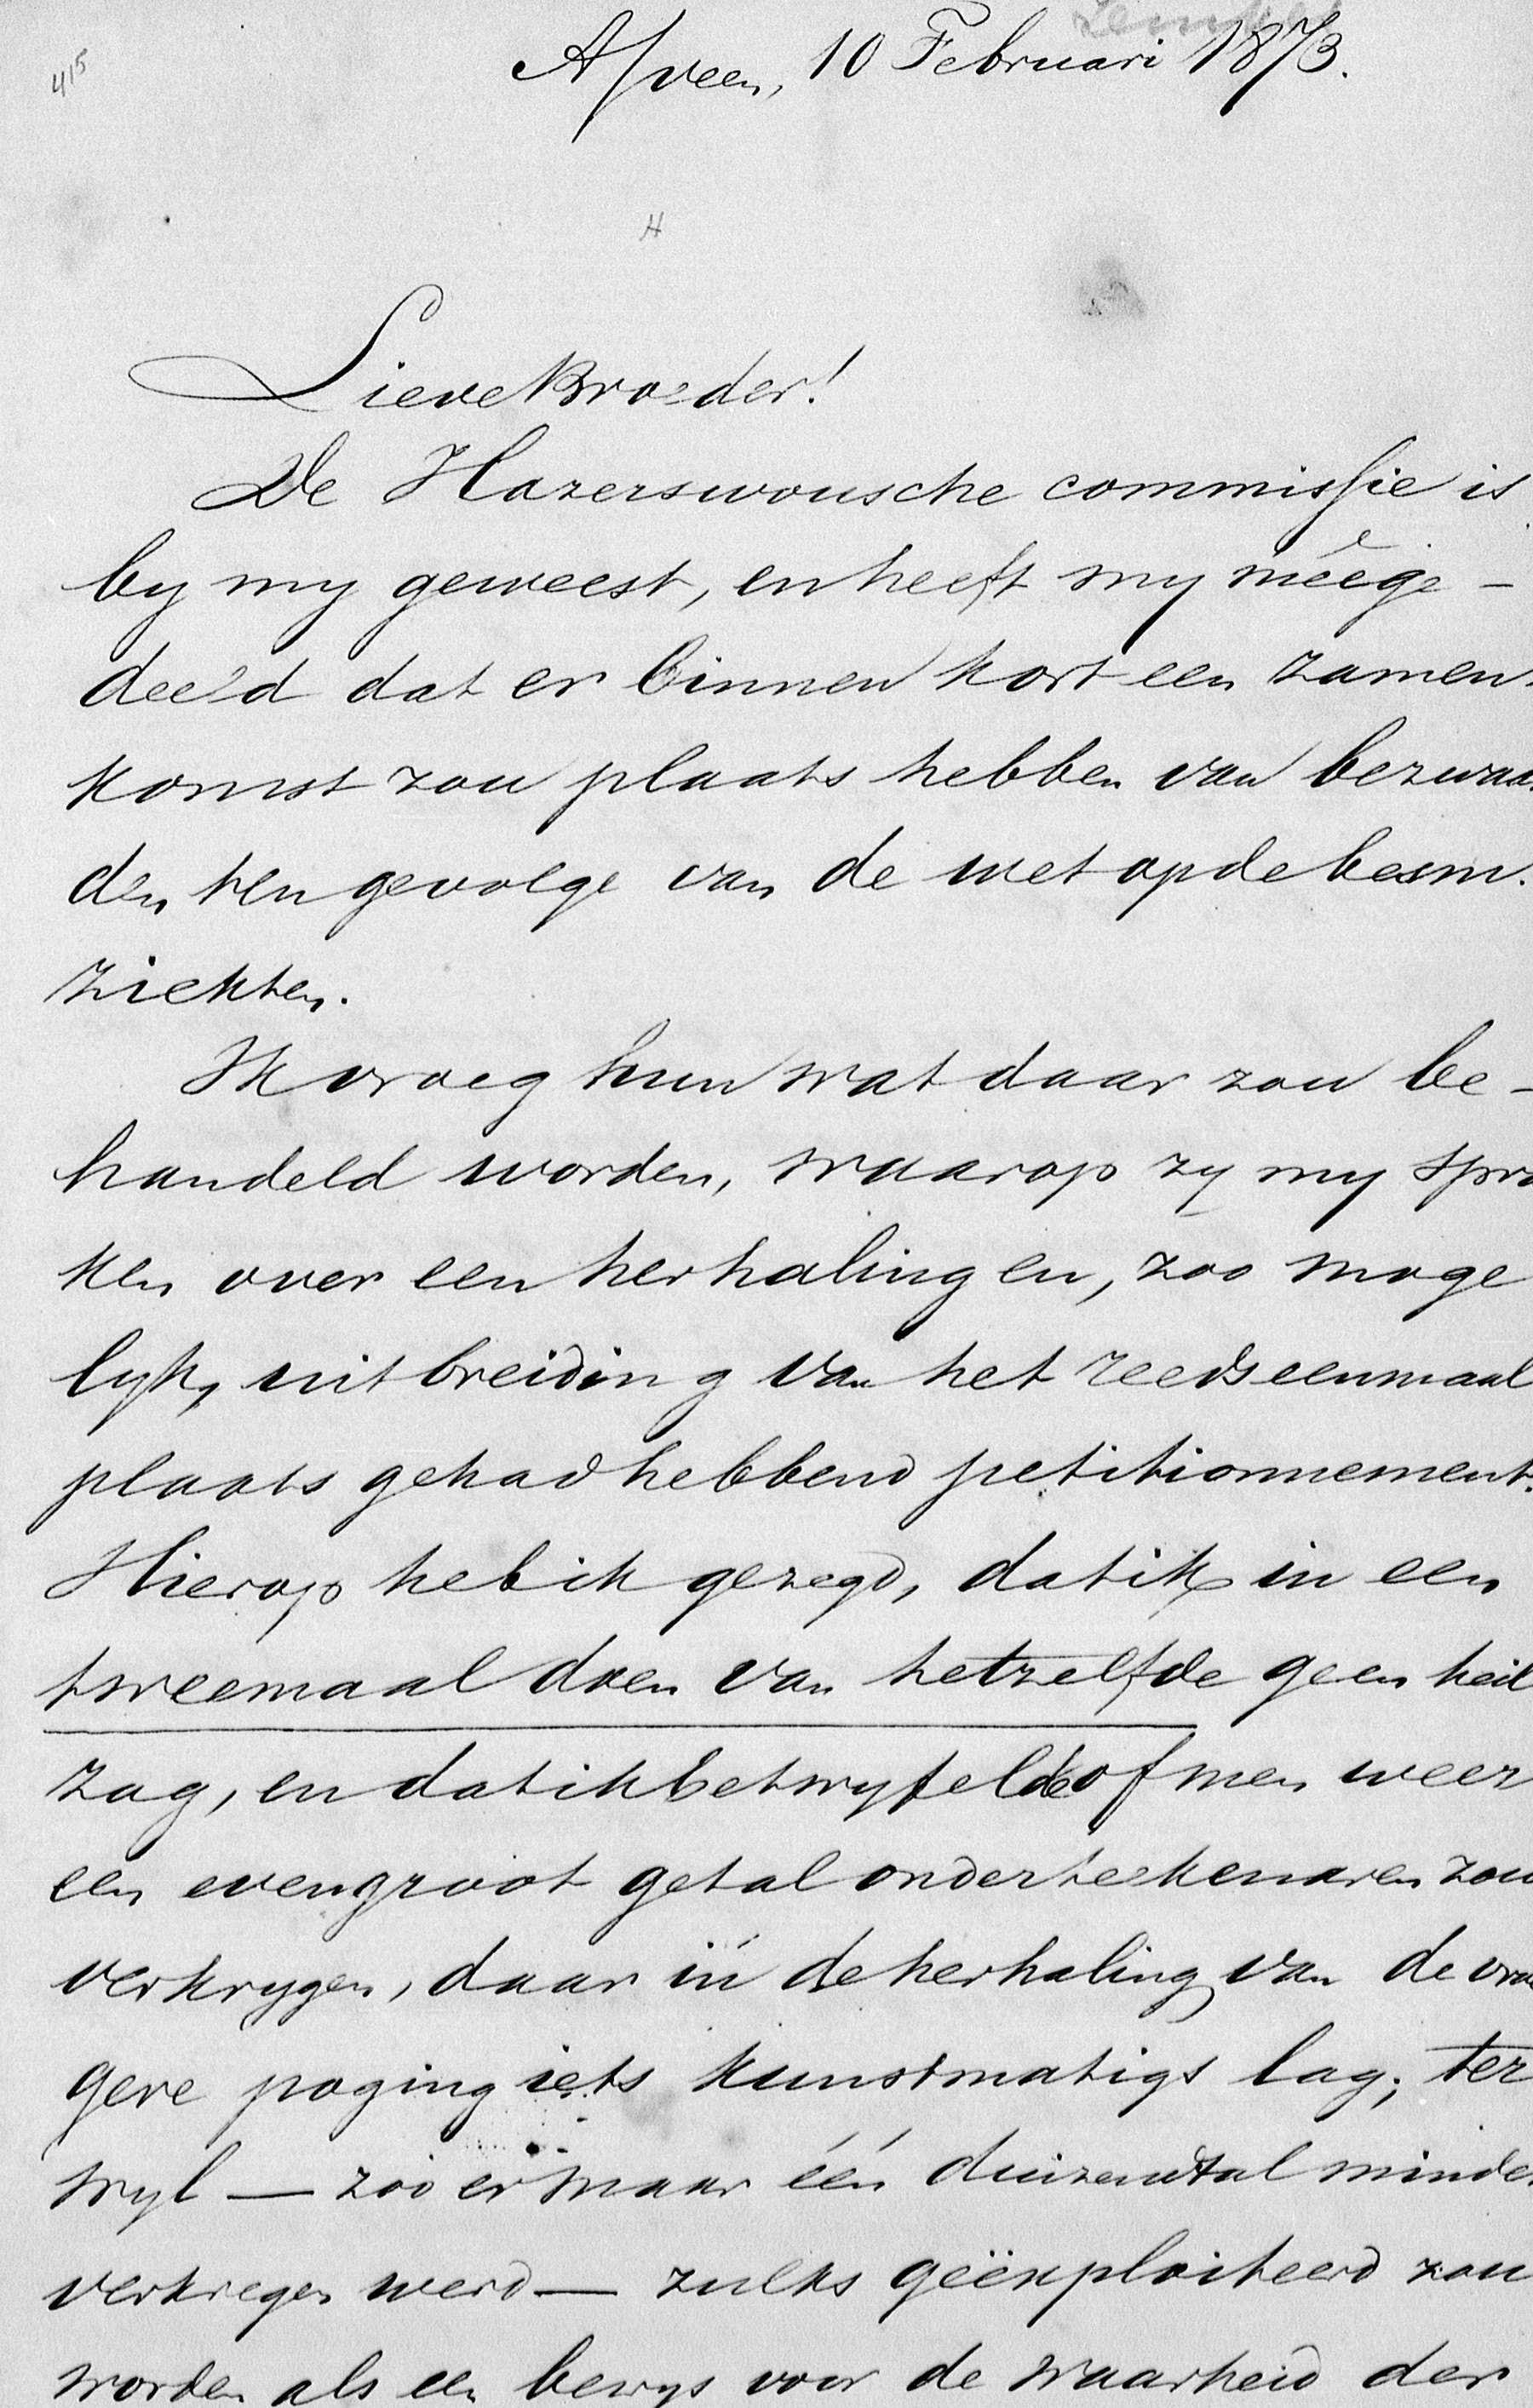 415
A/veen, 10 Februari 1873.
Lieve Broeder!
De Hazerswousche commissie is
by my geweest, en heeft my meêge-
deeld dat er binnen kort een zamen-
komst zou plaats hebben van bezwaar
den ten gevolge van de wet op de besm.
ziekten.
Ik vroeg hun wat daar zou be-
handeld worden, waarop zy my spra
ken over een herhaling en, zoo moge
lyk, uitbreiding van het reeds eenmaal
plaats gehad hebbend petitionnement.
Hierop heb ik gezegd, dat ik in een
tweemaal doen van hetzelfde geen heil
zag, en dat ik betwyfelde of men weer
een evengroot getal onderteekenaren zou
verkrygen, daar in de herhaling van de vroe
gere poging iets kunstmatigs lag; ter
wyl — zóó er maar één duizendtal minder
verkregen werd — zulks geëxploiteerd zou
worden als een bewys voor de waarheid der